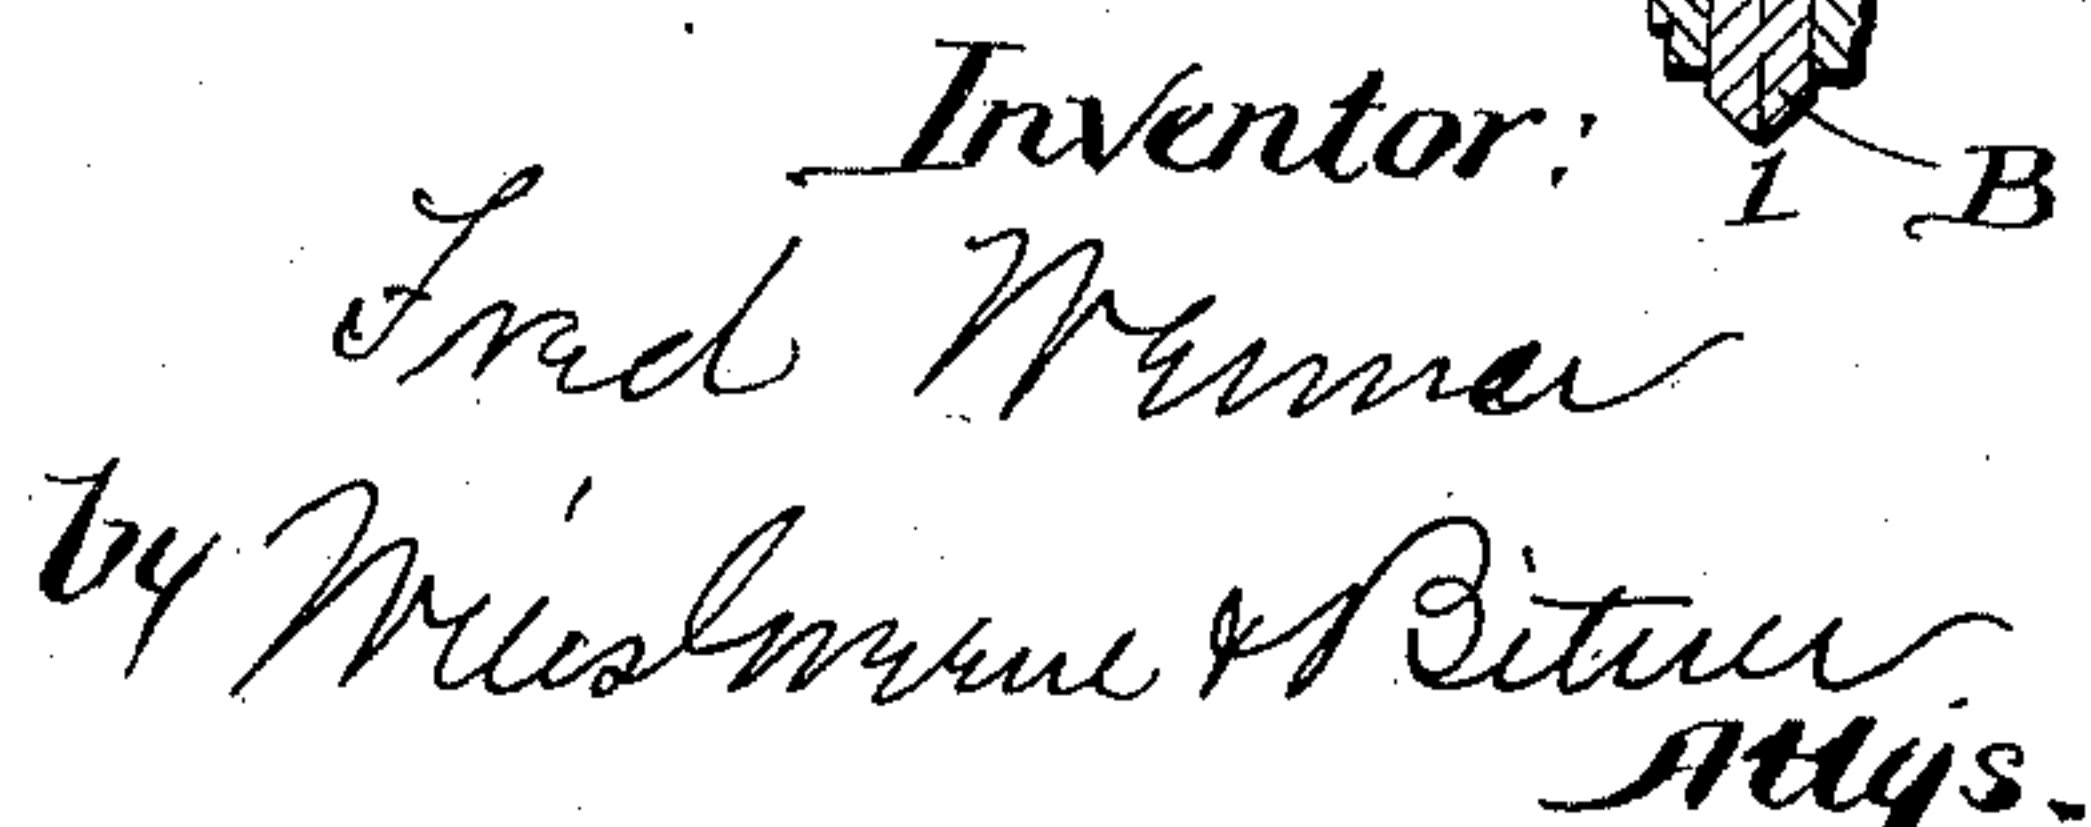 Inventor:
1 B
Fred Werner
by Wiles Greene & Bitner
Attys.